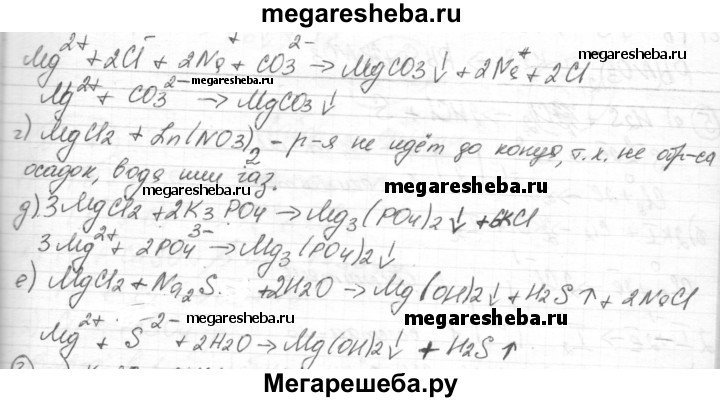 megaresheba.ru
Mg²⁺ + 2Cl⁻ + 2Na⁺ + CO3²⁻ → MgCO3↓ + 2Na⁺ + 2Cl⁻
megaresheba.ru megaresheba.ru
Mg²⁺ + CO3²⁻ → MgCO3↓
г) MgCl2 + Zn(NO3)2 - р-я не идёт до конца, т.к. не обр-ся
осадок, вода или газ.
megaresheba.ru megaresheba.ru
д) 3MgCl2 + 2K3PO4 → Mg3(PO4)2↓ + 6KCl
3Mg²⁺ + 2PO4³⁻ → Mg3(PO4)2↓
е) MgCl2 + Na2S + 2H2O → Mg(OH)2↓ + H2S↑ + 2NaCl
megaresheba.ru megaresheba.ru
Mg²⁺ + S²⁻ + 2H2O → Mg(OH)2↓ + H2S↑
Мегарешеба.ру